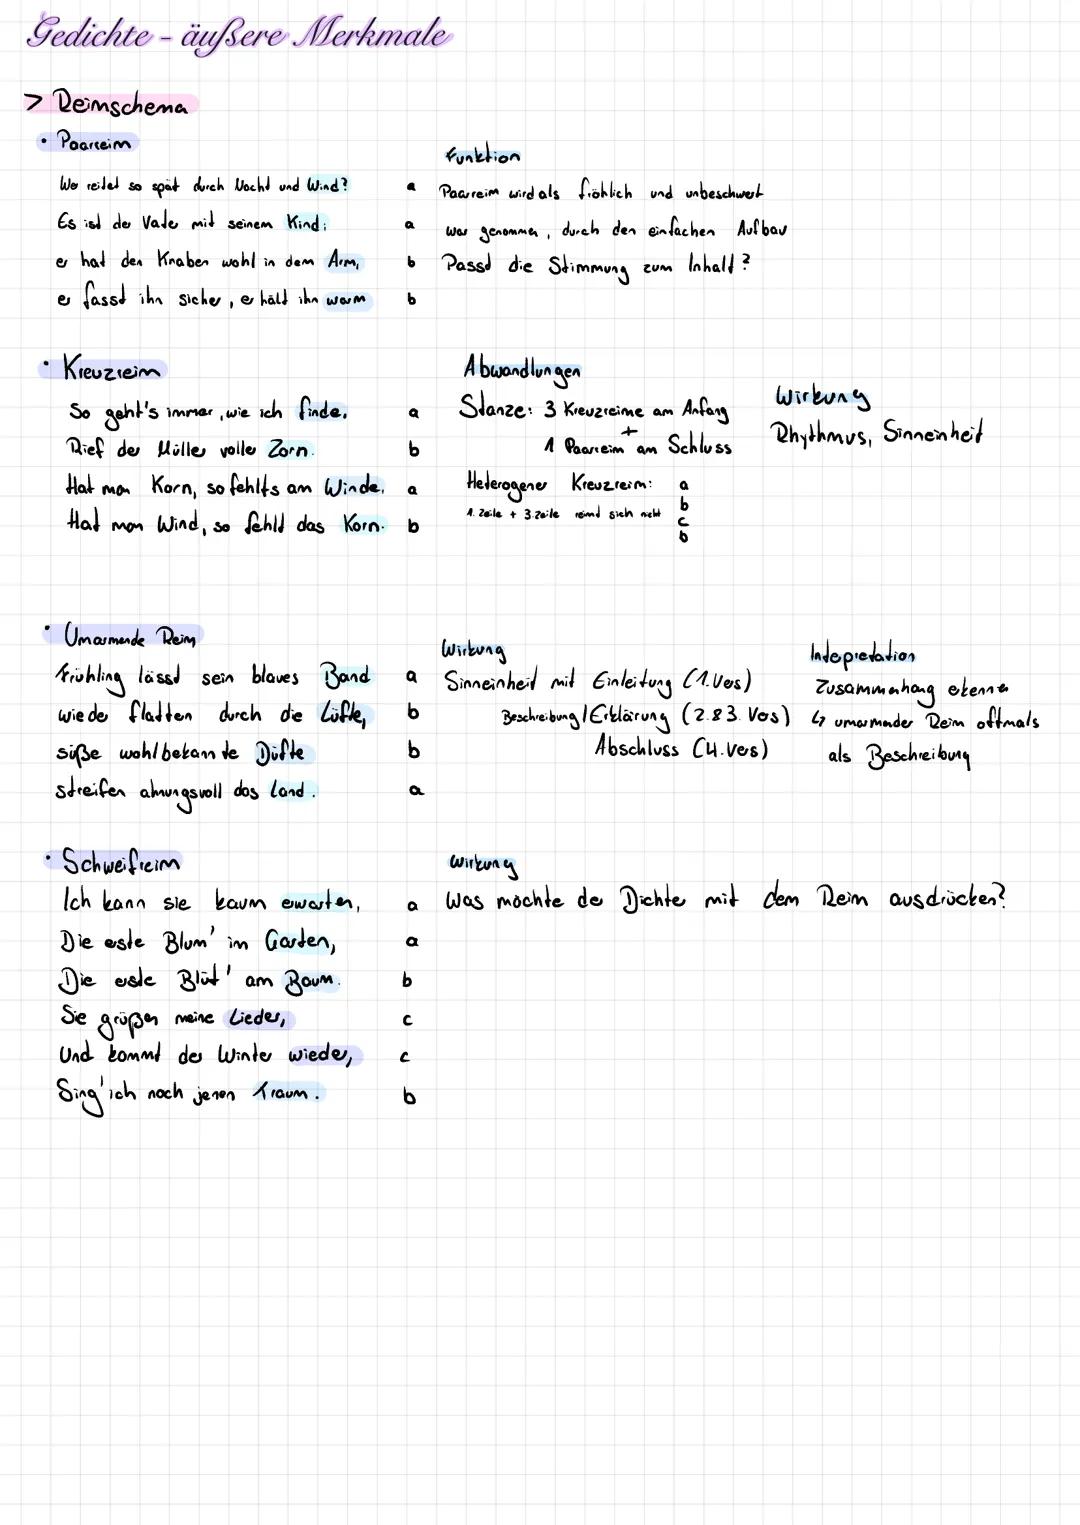 Gedichte - äußere Merkmale
> Reimschema
• Paarreim
Funktion
Wer reitet so spät durch Nacht und Wind? a
Paarreim wird als fröhlich und unbeschwert
Es ist der Vater mit seinem Kind; a
war genommen, durch den einfachen Aufbau
er hat den Knaben wohl in dem Arm, b
Passt die Stimmung zum Inhalt?
er fasst ihn sicher, er hält ihn warm b
• Kreuzreim
Abwandlungen
Wirkung
So geht's immer, wie ich finde, a
Stanze: 3 Kreuzreime am Anfang
Rhythmus, Sinneinheit
Rief der Müller voller Zorn. b
+
1 Paarreim am Schluss
Hat man Korn, so fehlts am Winde, a
Heterogener Kreuzreim: a
b
c
b
1. Zeile + 3. Zeile reimt sich nicht
Hat man Wind, so fehlt das Korn. b
• Umarmende Reim
Wirkung
Interpretation
Frühling lässt sein blaues Band a
Sinneinheit mit Einleitung (1. Vers)
Zusammenhang erkennen
wieder flattern durch die Lüfte, b
Beschreibung/Erklärung (2.&3. Vers)
↳ umarmender Reim oftmals
süße wohlbekannte Düfte b
Abschluss (4. Vers)
als Beschreibung
streifen ahnungsvoll das Land. a
• Schweifreim
Wirkung
Ich kann sie kaum erwarten, a
Was möchte der Dichter mit dem Reim ausdrücken?
Die erste Blum' im Garten, a
Die erste Blüt' am Baum. b
Sie grüßen meine Lieder, c
Und kommt der Winter wieder, c
Sing' ich noch jenen Traum. b